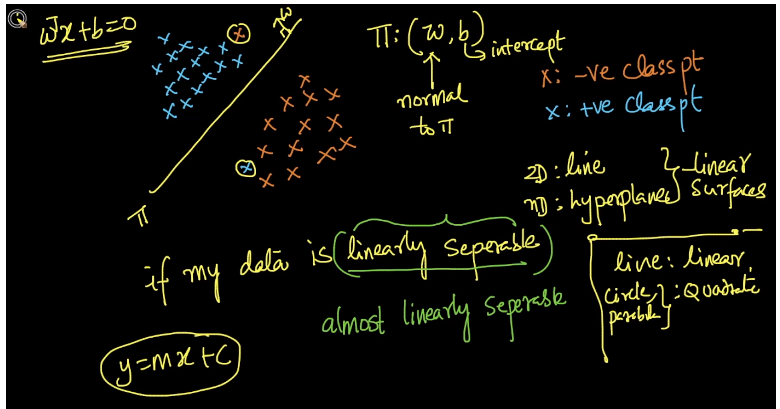 wᵀx+b=0
w
π: (w, b)
intercept
normal
to π
x: -ve class pt
x: +ve class pt
2D: line
nD: hyperplane
linear
surfaces
π
if my data is (linearly seperable)
almost linearly seperable
line: linear
circle,
parabola
: Quadratic
y=mx+c